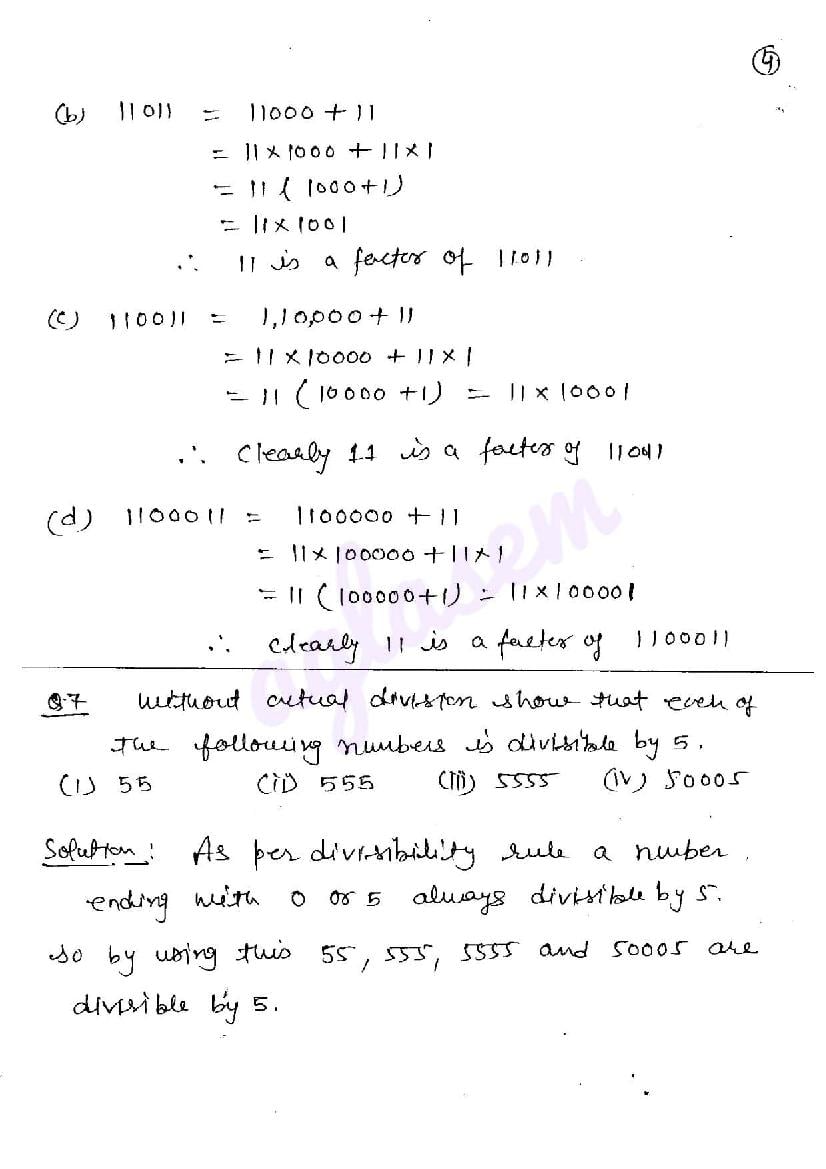 5
(b) 11011 = 11000 + 11
= 11 × 1000 + 11 × 1
= 11 ( 1000+1)
= 11 × 1001
∴ 11 is a factor of 11011
(c) 110011 = 1,10,000 + 11
= 11 × 10000 + 11 × 1
= 11 ( 10000 +1) = 11 × 10001
∴ clearly 11 is a factor of
(d) 1100011 = 1100000 + 11
= 11 × 100000 + 11 × 1
= 11 (100000+1) = 11 × 100001
∴ clearly 11 is a factor of 1100011
Q7 without actual division show that each of
the following numbers is divisible by 5.
(i) 55 (ii) 555 (iii) 5555 (iv) 50005
Solution: As per divisibility rule a number
ending with 0 or 5 always divisible by 5.
so by using this 55, 555, 5555 and 50005 are
divisible by 5.
aglasem